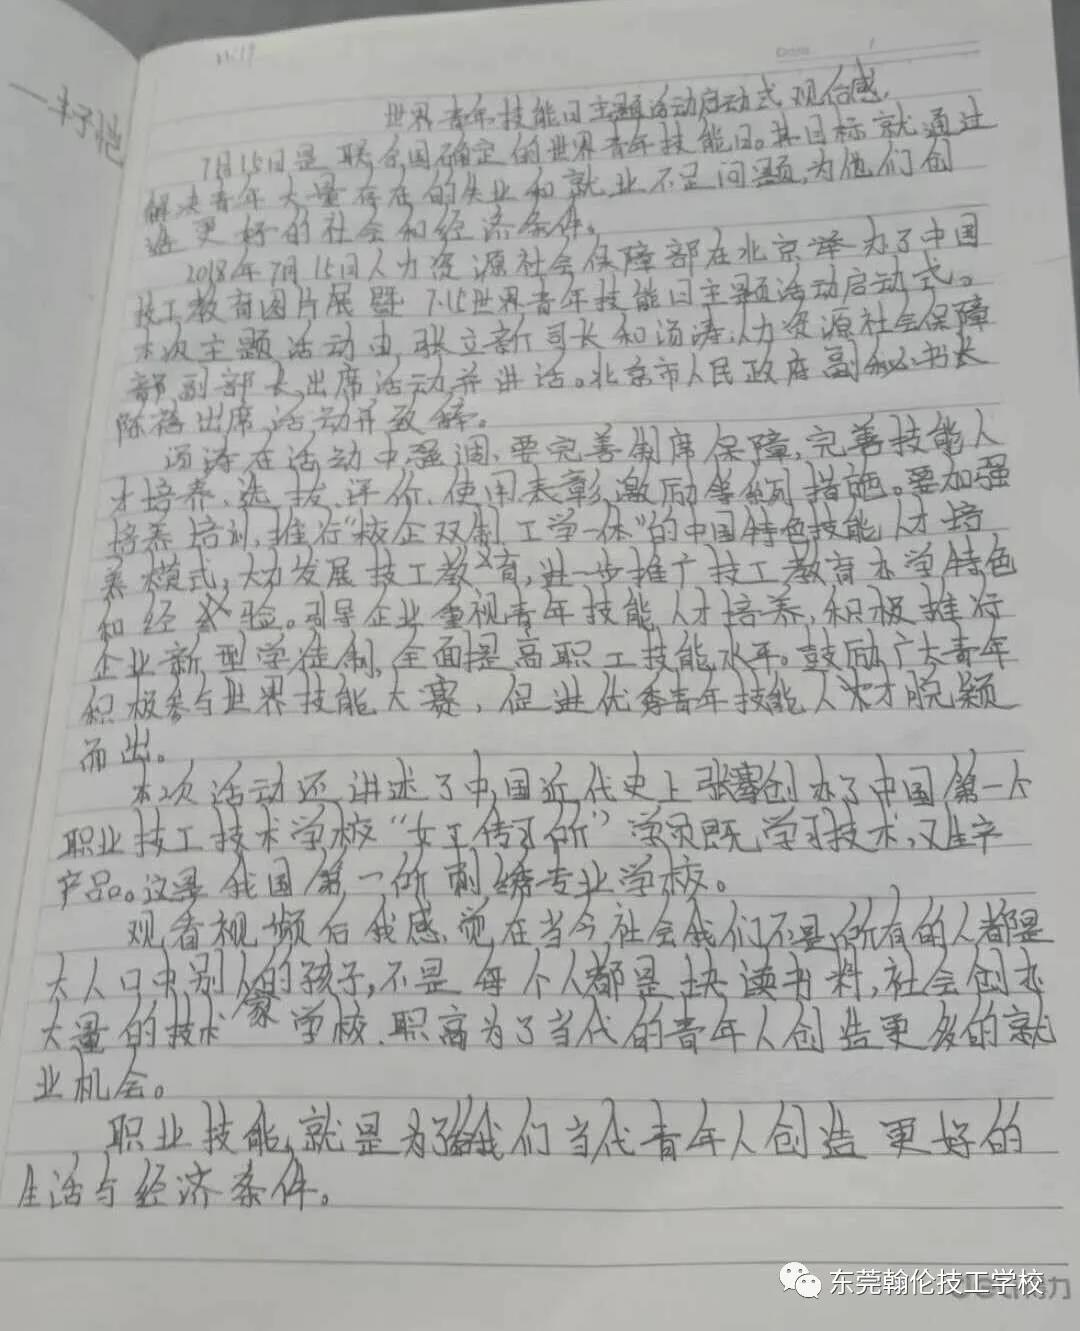 世界青年技能日主题活动启动式观后感.
7月15日是联合国确定的世界青年技能日。其目标就通过
解决青年大量存在的失业和就业不足问题,为他们创
造更好的社会和经济条件。
2018年7月15日人力资源社会保障部在北京举办了中国
技工教育图片展暨7.15世界青年技能日主题活动启动式。
本次主题活动由张立新司长和汤涛,人力资源社会保障
部副部长出席活动并讲话。北京市人民政府副秘书长
陈蓓出席活动并致辞。
汤涛在活动中强调、要完善制席保障,完善技能人
才培养、选拔、评价、使用表彰激励等系列措施。要加强
培养培训,推行“校企双制、工学一体”的中国特色技能人才培
养模式,大力发展技工教育,进一步推广技工教育办学特色
和经验。引导企业重视青年技能人才培养,积极推行
企业新型学徒制,全面提高职工技能水平。鼓励广大青年
积极参与世界技能大赛,促进优秀青年技能人才脱颖
而出。
本次活动还讲述了中国近代史上张謇创办了中国第一个
职业技工技术学校“女工传习所”学员既学习技术,又生字
产品。这是我国第一所刺绣专业学校。
观看视频后我感觉在当今社会我们不是所有的人都是
大人口中别人家的孩子,不是每个人都是块读书料,社会创办
大量的技术学校、职高为了当代的青年人创造更多的就
业机会。
职业技能就是为了给我们当代青年人创造更好的
生活与经济条件。
东莞翰伦技工学校